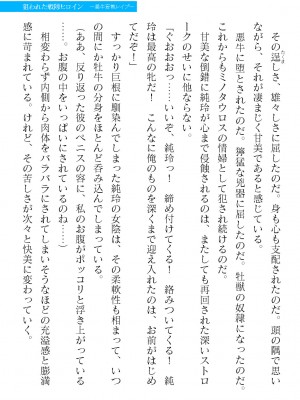 その逞しさ、雄々しさに屈したのだ。身も心も支配されたのだ。頭の隅で思い
ながら、それが凄まじく甘美であると感じている。
悪牛に堕とされたのだ。獰猛な兇器に屈したのだ。牡獣の奴隷になったのだ。
これからもミノタウロスの情婦として犯され続けるのだ。
甘美な倒錯に純玲が心まで侵食されるのは、またしても再回された深いストロ
ークのせいに他ならない。
「ぐおおおっ……いいぞ、純玲っ！　締め付けてくる！　絡みついてくる！　純
玲は最高の牝だ！　こんなに俺のものを深くまで迎え入れたのは、お前がはじめ
てだぞ！」
すっかり巨根に馴染んでしまった純玲の女陰は、その柔軟性も相まって、いつ
の間にか牡牛の分身をほとんど呑み込んでしまっている。
（ああ、反り返った彼のペニスの容に、私のお腹がポッコリと浮き上がっている
……。お腹の中をいっぱいにされているのね……）
相変わらず内側から肉体をバラバラにされてしまいそうなほどの充溢感と膨満
感に苛まれている。けれど、その苦しさが次々と快美に変わっていくの